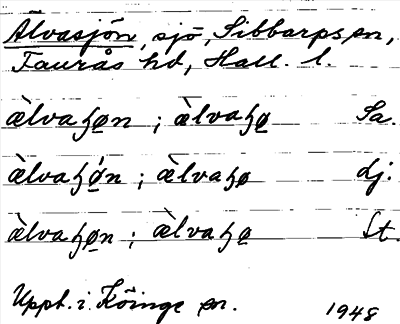 Älvasjön, sjö, Sibbarps sn,
Faurås hd, Hall. l.
ælvaɧøn ; ælvaɧø Sa.
ælvaɧøn ; ælvaɧø dj.
ælvaɧøn ; ælvaɧø St.
Uppt. i Köinge sn. 1948